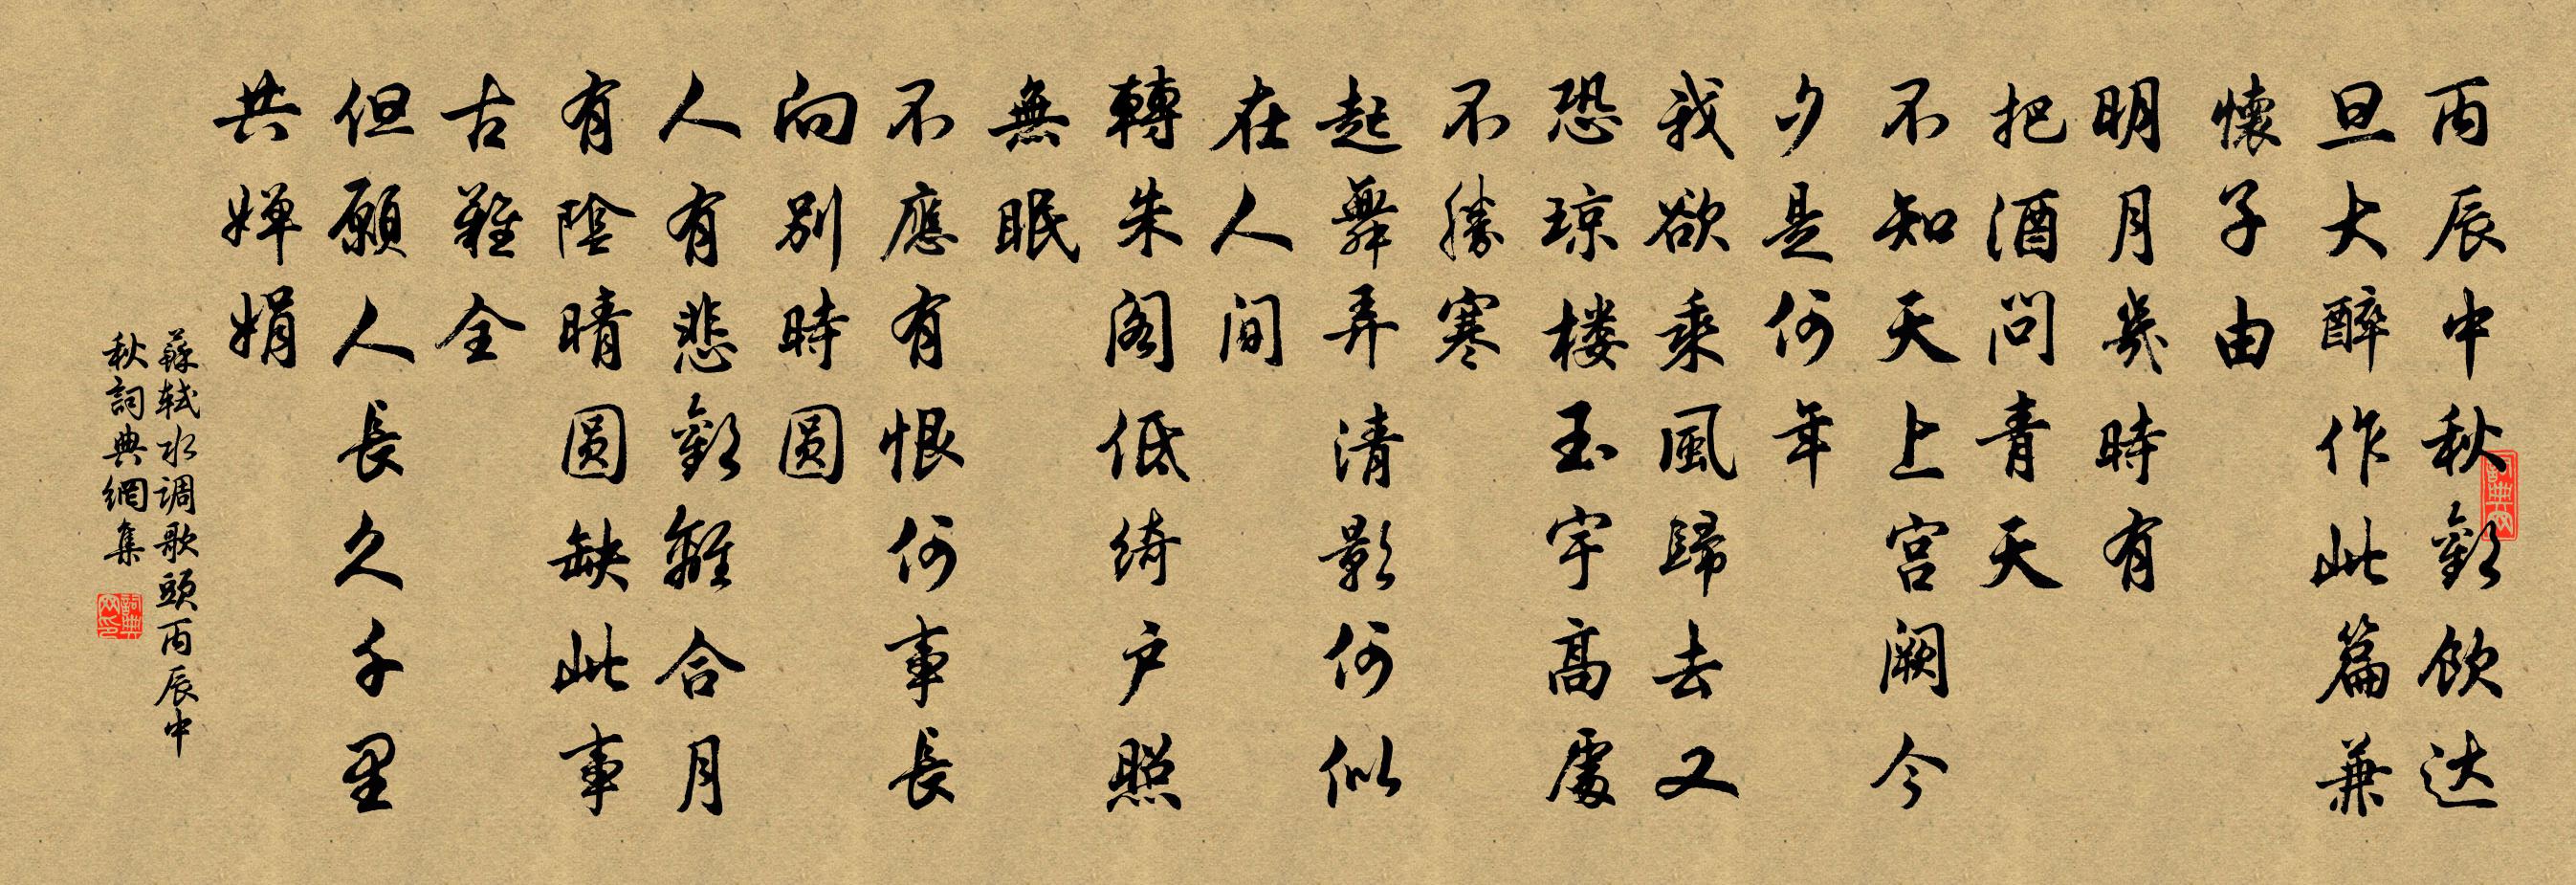 丙辰中秋歡飲达
旦大醉作此篇兼
懷子由
明月幾時有
把酒问青天
不知天上宫阙今
夕是何年
我欲乘風歸去又
恐琼楼玉宇高處
不勝寒
起舞弄清影何似
在人间
轉朱阁低绮户照
無眠
不應有恨何事長
向别時圆
人有悲歡離合月
有陰晴圆缺此事
古難全
但願人長久千里
共婵娟
蘇轼水调歌頭丙辰中
秋詞典網集
詞典网
詞典网印